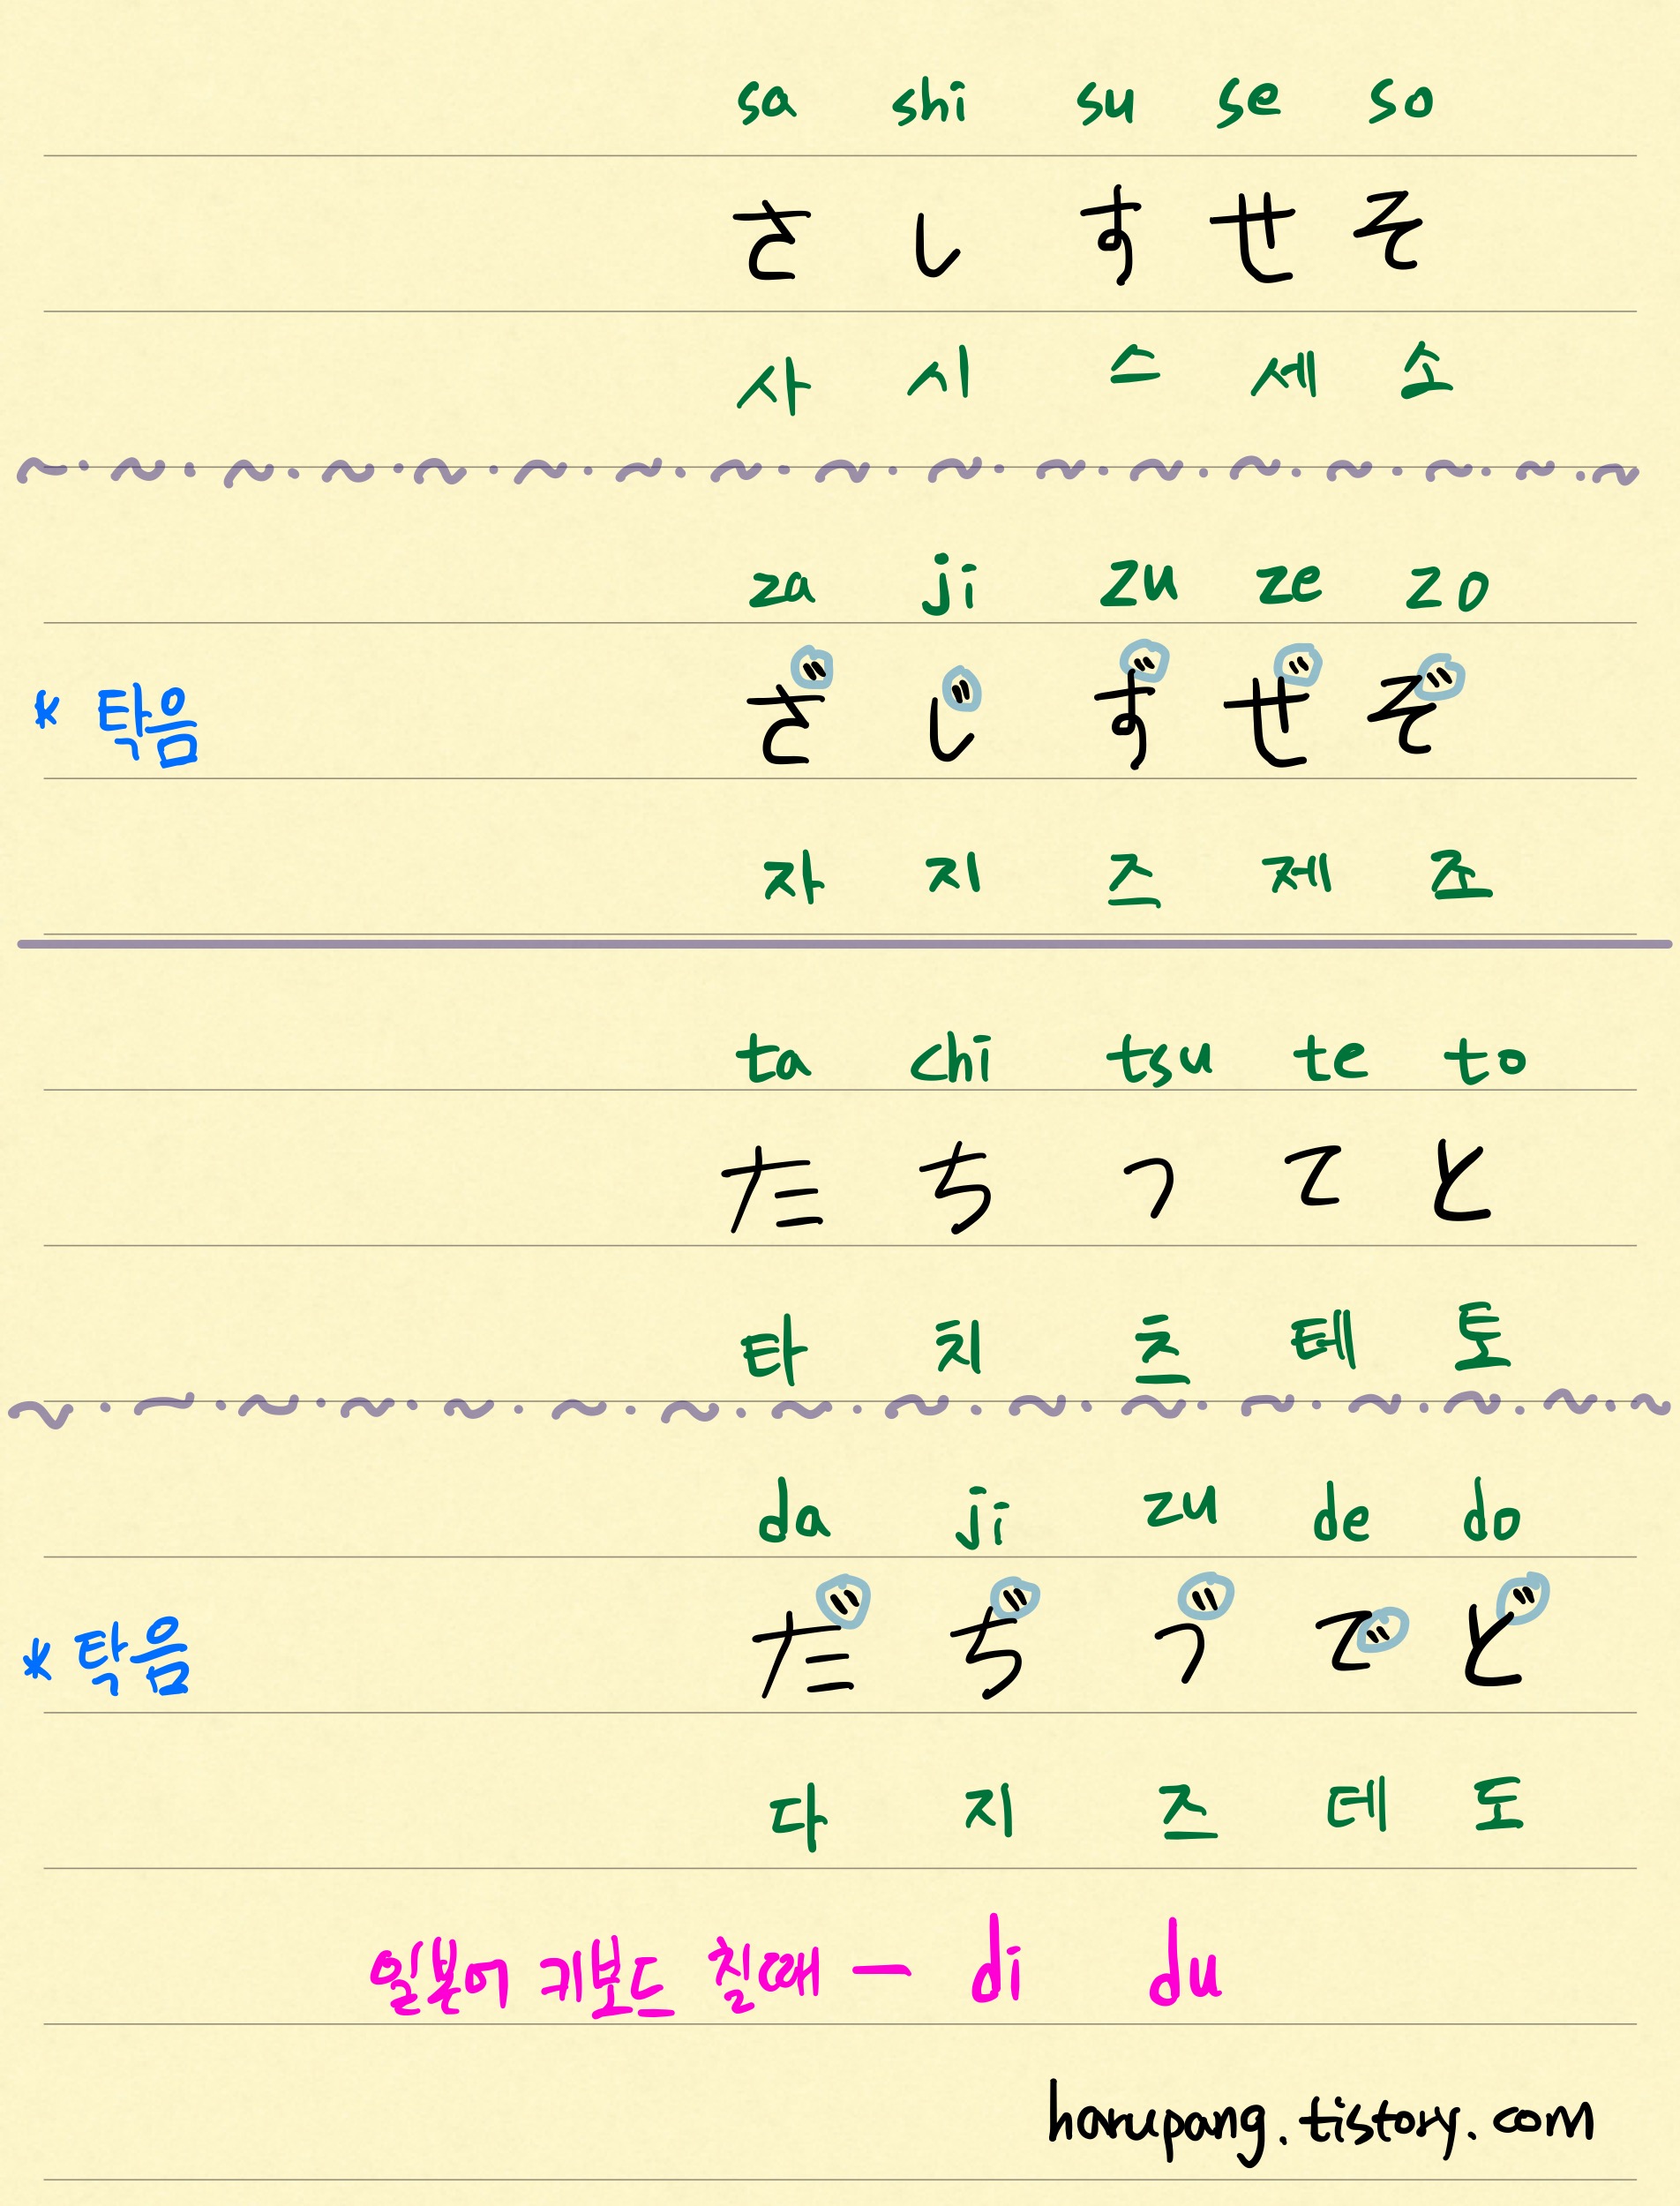 sa shi su se so
さ し す せ そ
사 시 스 세 소
za ji zu ze zo
* 탁음 ざ じ ず ぜ ぞ
자 지 즈 제 조
ta chi tsu te to
た ち つ て と
타 치 츠 테 토
da ji zu de do
* 탁음 だ ぢ づ で ど
다 지 즈 데 도
일본어 키보드 칠때 — di du
harupang.tistory.com